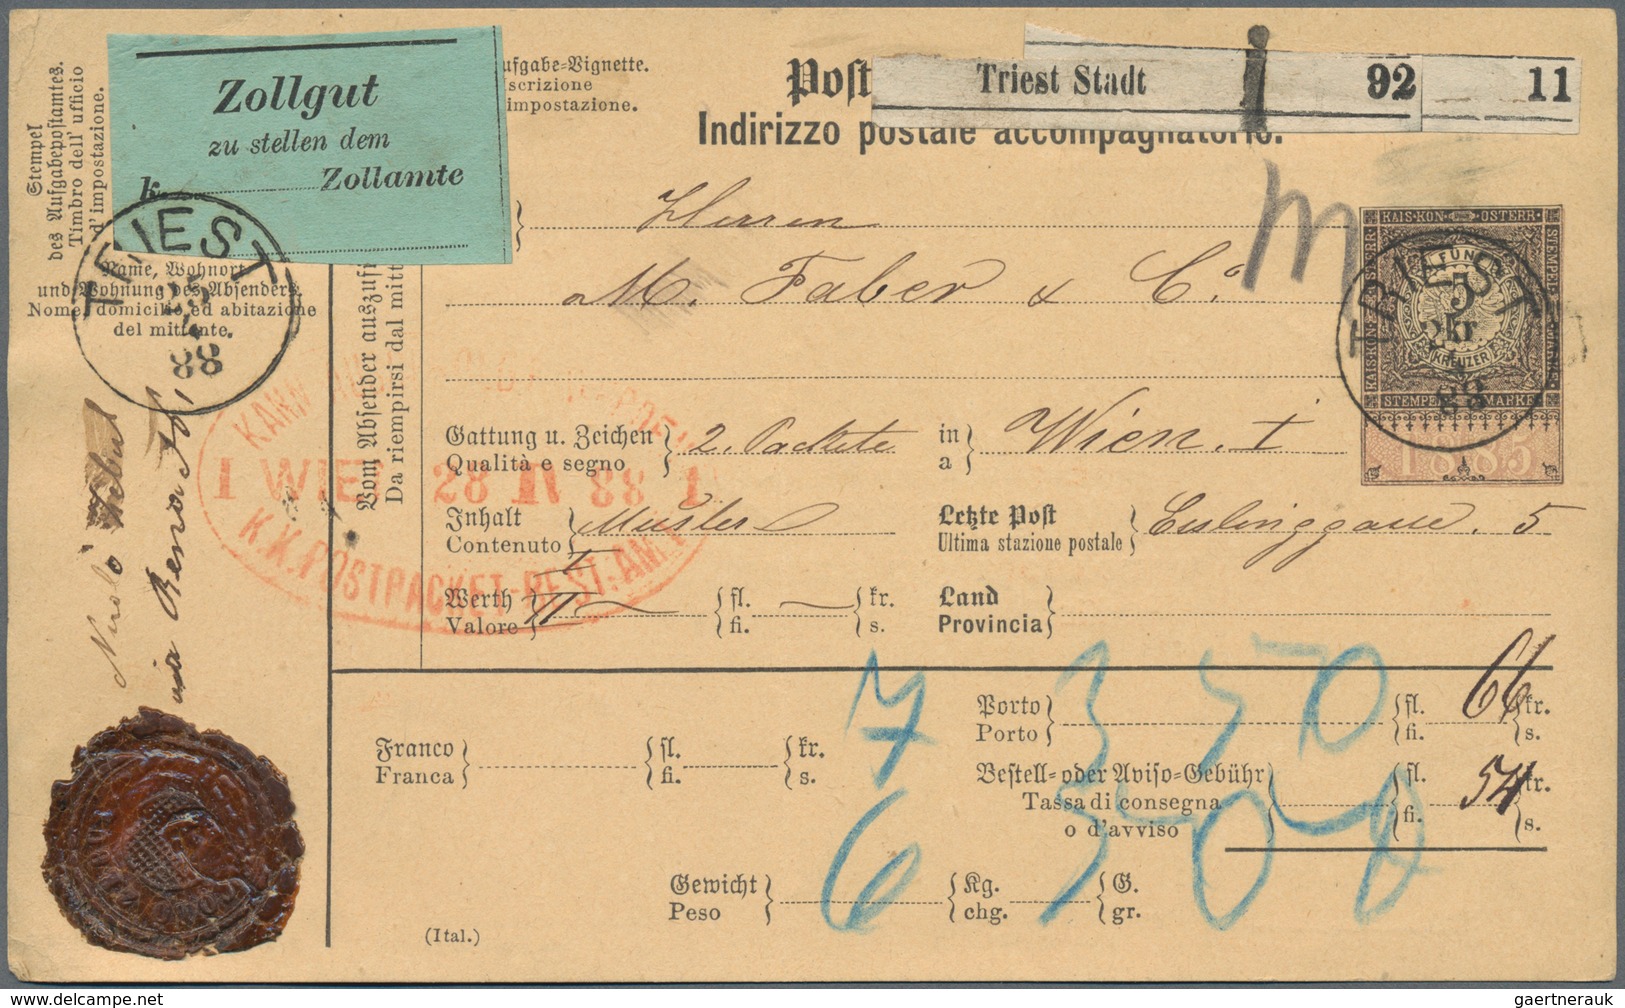 Zollgut
zu stellen dem
k. Zollamte
Stempel
des Aufgabepostamtes.
Timbro dell' ufficio
d'impostazione.
ufgabe-Vignette.
iscrizione
impostazione.
Post
Triest Stadt 92 11
Indirizzo postale accompagnatorio.
Herren
M. Faber & Co
KAIS. KÖN. ÖSTERR.
STEMPEL MARKE
FÜNF
5
kr
KREUZER
1885
TRIEST
88
TRIEST
25
4
88
Name, Wohnort
und Wohnung des Absenders
Nome, domicilio ed abitazione
del mittente.
Vom Absender auszufü
Da riempirsi dal mitt
via
Gattung u. Zeichen
Qualità e segno
2. Packete
in
a
Wien. I
I WIEN 28 IV 88 1
K.K. POSTPACKET-BEST. AMT
Inhalt
Contenuto
Muster
Letzte Post
Ultima stazione postale
Eslinggasse. 5
Werth
Valore
fl.
fi.
kr.
s.
Land
Provincia
7 3 50
6 3 500
Franco
Franca
fl.
fi.
kr.
s.
Porto
Porto
fl.
fi.
66
kr.
s.
Bestell- oder Aviso-Gebühr
Tassa di consegna
o d'avviso
fl.
fi.
54
kr.
s.
Gewicht
Peso
Kg.
chg.
G.
gr.
(Ital.)
www.delcampe.net
gaertnerauk